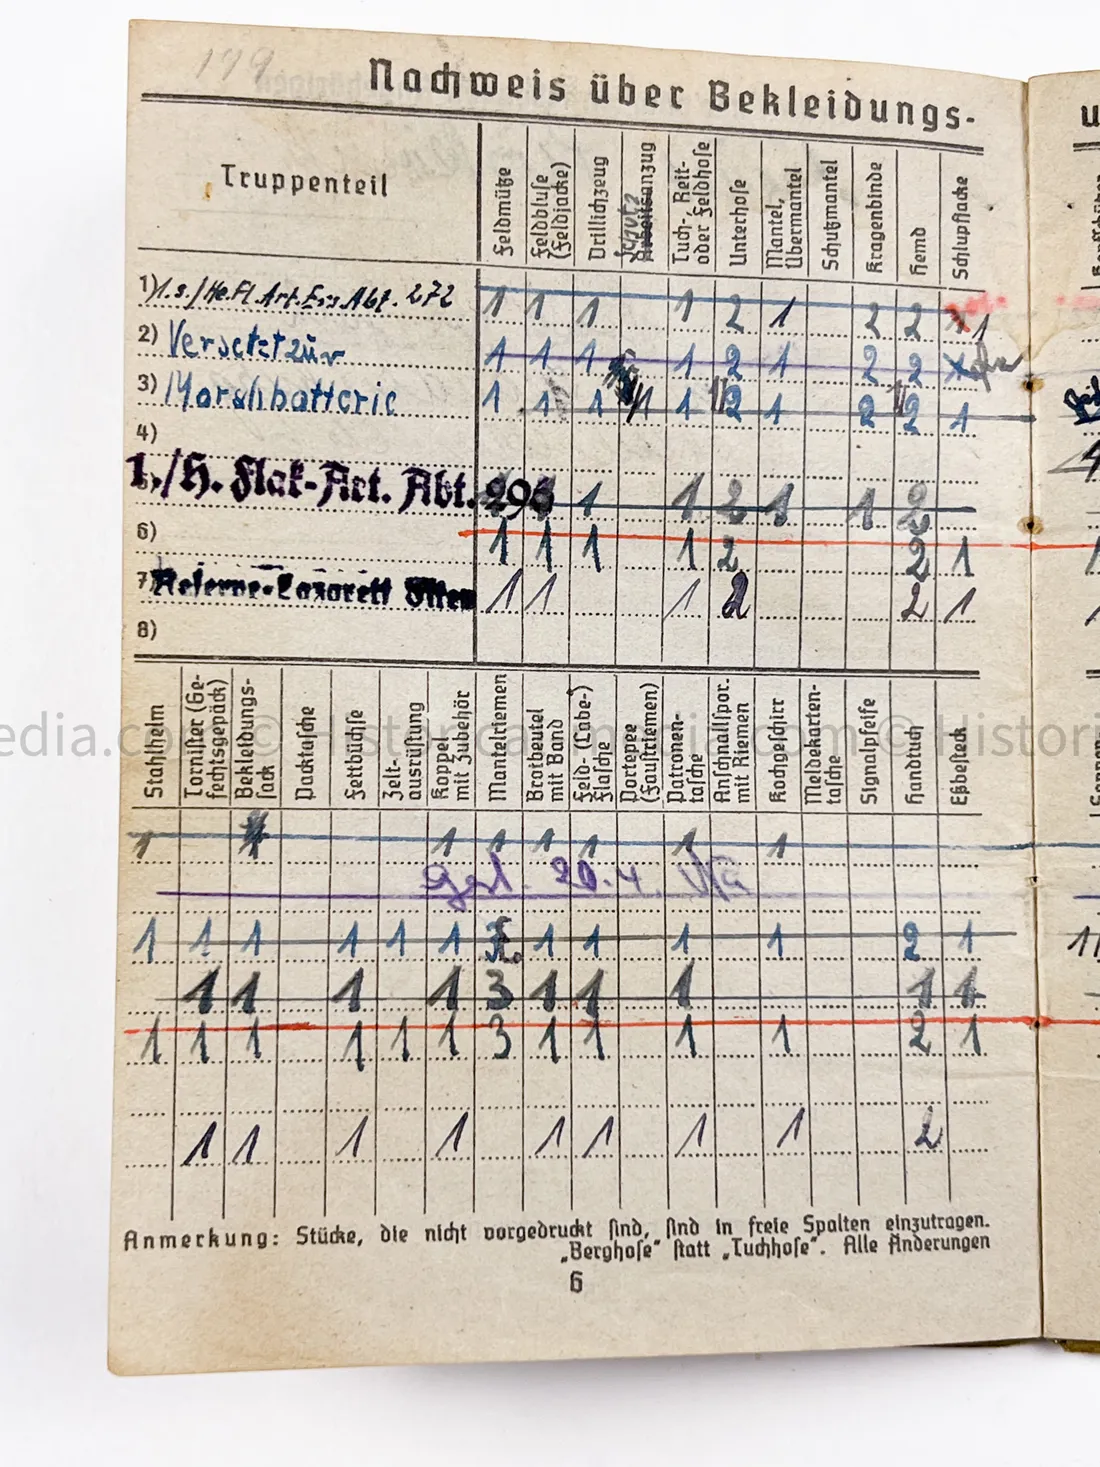 199
Nachweis über Bekleidungs-
Truppenteil
Feldmütze
Feldbluse (Feldjacke)
Drillichzeug
Schutz
Arbeitsanzug
Tuch-, Reit- oder Feldhose
Unterhose
Mantel, Übermantel
Schutzmantel
Kragenbinde
Hemd
Schlupfjacke
1) 1.s./He.Fl.Art.Ers.Abt. 272 1 1 1 1 2 1 2 2 1
2) Versetzt zur 1 1 1 1 2 1 2 2
3) Marschbatterie 1 1 1 1 1 2 1 2 2 1
4)
1./H. Flak-Art. Abt. 296 1 1 2 1 1 2
6) 1 1 1 1 2 2 1
7) Reserve-Lazarett 1 1 1 2 2 1
8)
Stahlhelm
Tornister (Gefechtsgepäck)
Bekleidungssack
Packtasche
Fettbüchse
Zeltausrüstung
Koppel mit Zubehör
Mantelriemen
Brotbeutel mit Band
Feld- (Labe-) Flasche
Portepee (Faustriemen)
Patronentasche
Anschnallspor. mit Riemen
Kochgeschirr
Meldekartentasche
Signalpfeife
Handtuch
Eßbesteck
1 1 1 1 1 1 1
20.4.
1 1 1 1 1 1 1 1 1 1 2 1
1 1 1 1 3 1 1 1 1 1
1 1 1 1 1 1 3 1 1 1 1 2 1
1 1 1 1 1 1 1 1 2
Anmerkung: Stücke, die nicht vorgedruckt sind, sind in freie Spalten einzutragen.
„Berghose" statt „Tuchhose". Alle Änderungen
6